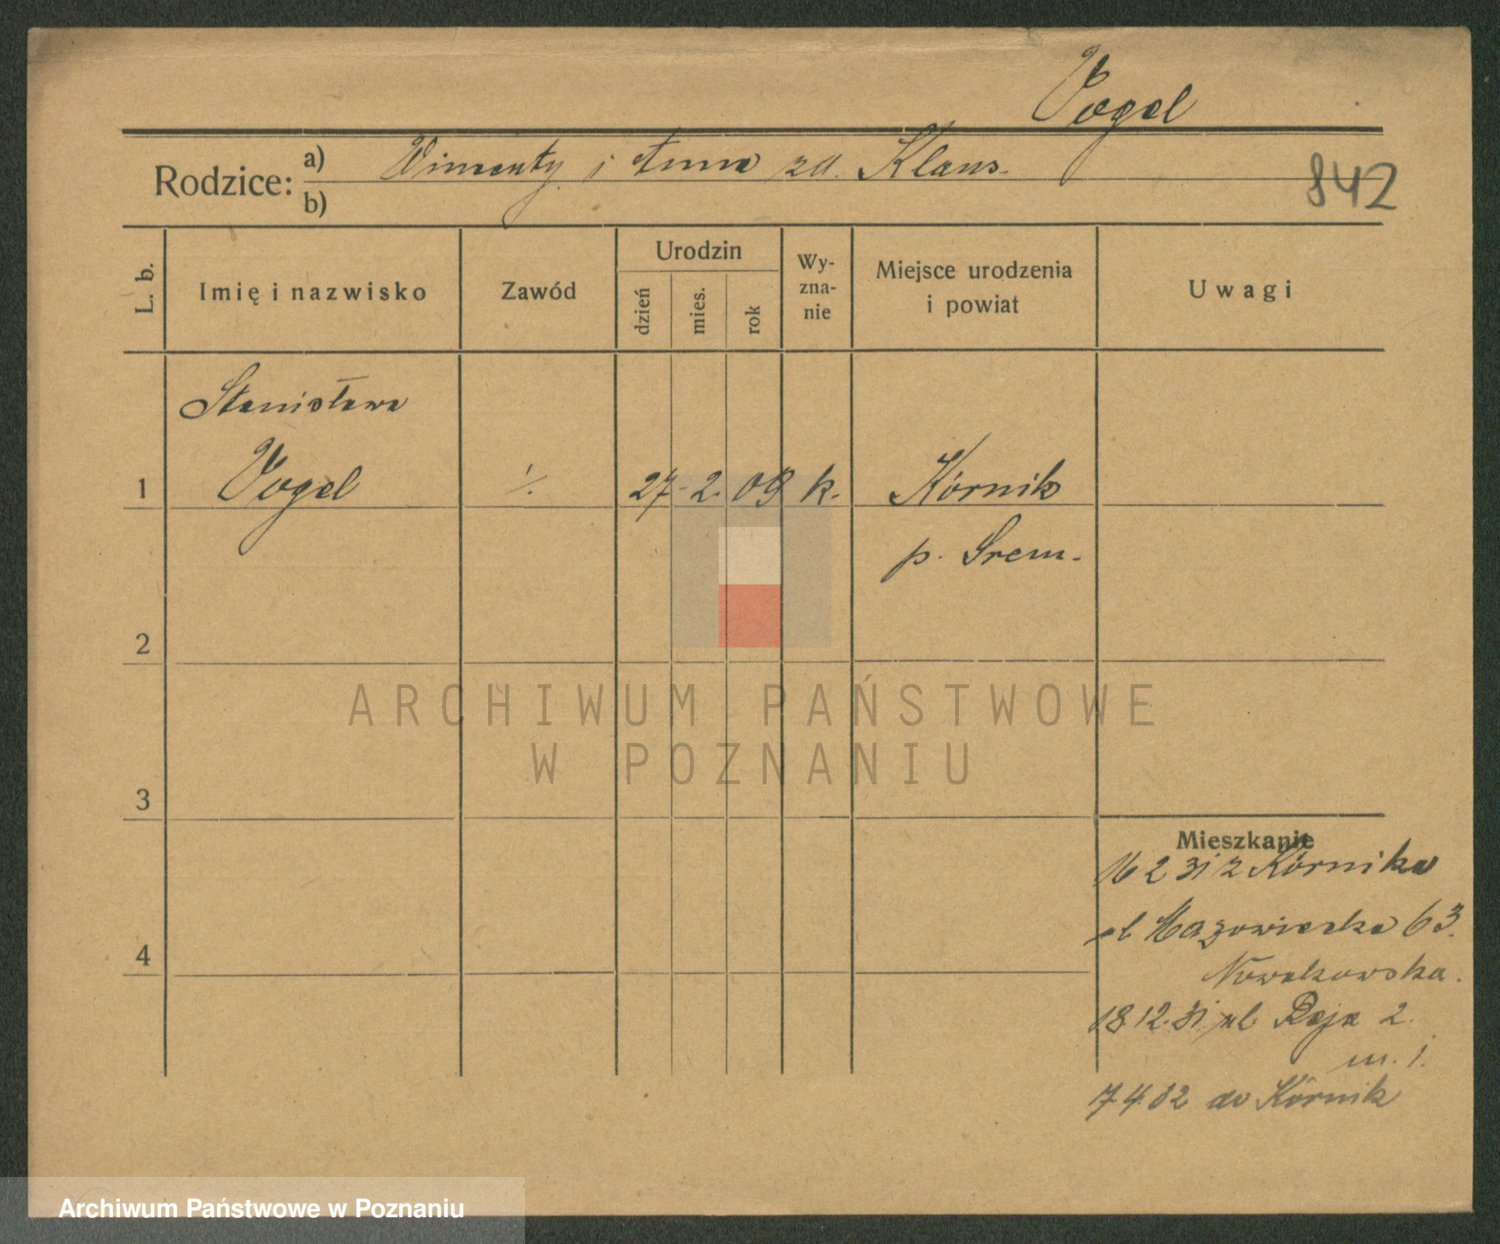 Vogel
Rodzice: a) Wincenty i Anna zd. Klaus.
b)
842
L. b.
Imię i nazwisko
Zawód
Urodzin
dzień
mies.
rok
Wy-
zna-
nie
Miejsce urodzenia
i powiat
Uwagi
Stanisława
1 Vogel ./. 27. 2. 09 k. Kórnik
p. Śrem.
2
ARCHIWUM PAŃSTWOWE
W POZNANIU
3
Mieszkanie
16 2 31 z Kórnika
4 ul Mazowiecka 63.
Nowakowska.
18.12.31 ul. Reja 2.
m. 1.
7.4.32 do Kórnik
Archiwum Państwowe w Poznaniu